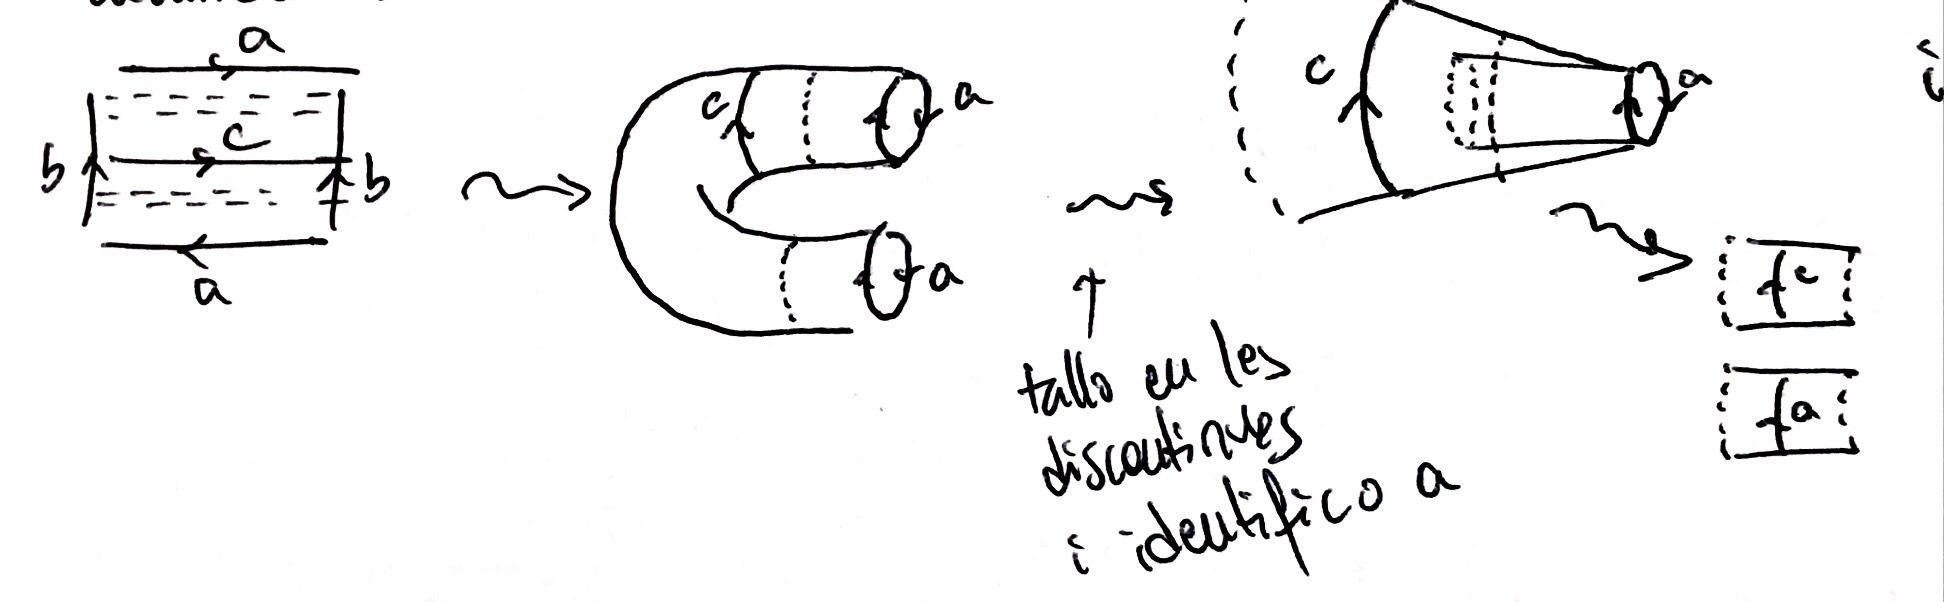 a
c
b
b
a
c
a
a
c
a
c
a
tallo en les
discontinues
i identifico a